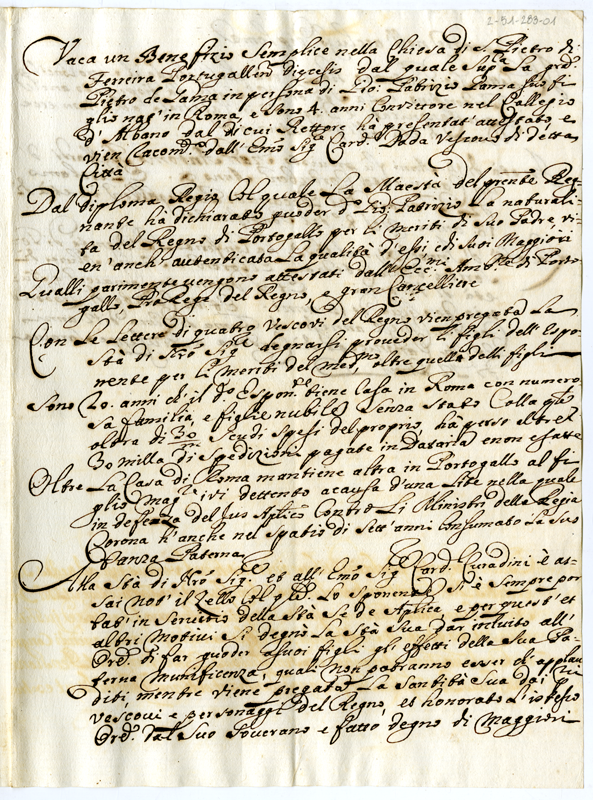 2-51-283-01
Vaca un Benefizio Semplice nella Chiesa di S. Pietro di
Ferreira Portugallen Diocesis dal quale Supca la gred.
Pietro de Lama in persona di Gio: Fabrizio Lama suo fi
glio nag' in Roma, e sono 4. anni Convictore nel Collegio
d'Albano dal di cui Rettore ha presentat' attestato, e
vien Racomdo dall' Emo Sigr Card. Dada Vescovo di detta
Città
Dal diploma Regio Col quale La Maestà del prente Reg-
nante ha dichiarato goder do Gio: Fabrizio La naturali-
ta del Regno di Portogallo per li meriti di Suo Padre, vi-
en' anch' autenticata La qualità d'essi e di Suoi Maggiori
Qualli parimente vengono attestati dall' Ecc. Amb.e di Porto-
gallo, Pro Rege del Regno, e gran Cancelliere
Con Le Lettere di quatro Vescovi del Regno vien pregata La
Stà di Nro Sigre degnarsi proveder li figli dell' Espo-
nente per li meriti del medmo, oltre quella delli figli
Sono 20. anni ch' il do Esponte tiene Casa in Roma con numero-
sa famiglia, e figlie nubile Senza Stato Colla qual
oltra di 30 Scudi Spesi del proprio, ha perso altre
30 milla di Spedizioni pagate in Dataria e non esatte
Oltre La Casa di Roma mantiene altra in Portogallo al fi-
glio magre ivi dettento a causa d'una Lite nella quale
in defenza del Jus Aplico Contro Li Ministri della Regia
Corona h'anche nel Spatio di Sett' anni Consumato La Sus
tanza Paterna
Alla Stà di Nro Sigre et all' Emo Sigr Card. Curadini è as-
sai not' il Zello Col qual Lo Sponente Si è Sempre por
tat' in Servitio della Stà Sede Aplica e per quest' et
altri motivi Si degnò La Stà Sua dar intuito all'
Ord. di far goder a Suoi figli gli effetti della Sua Pa-
terna Munificenza, quali non potranno esser ch' applau
diti, mentre viene pregata La Santità Sua dai
Vescovi e personaggi del Regno, et honorato L'istesso
Ord. dal Suo Soverano e fatto degno di Maggiori